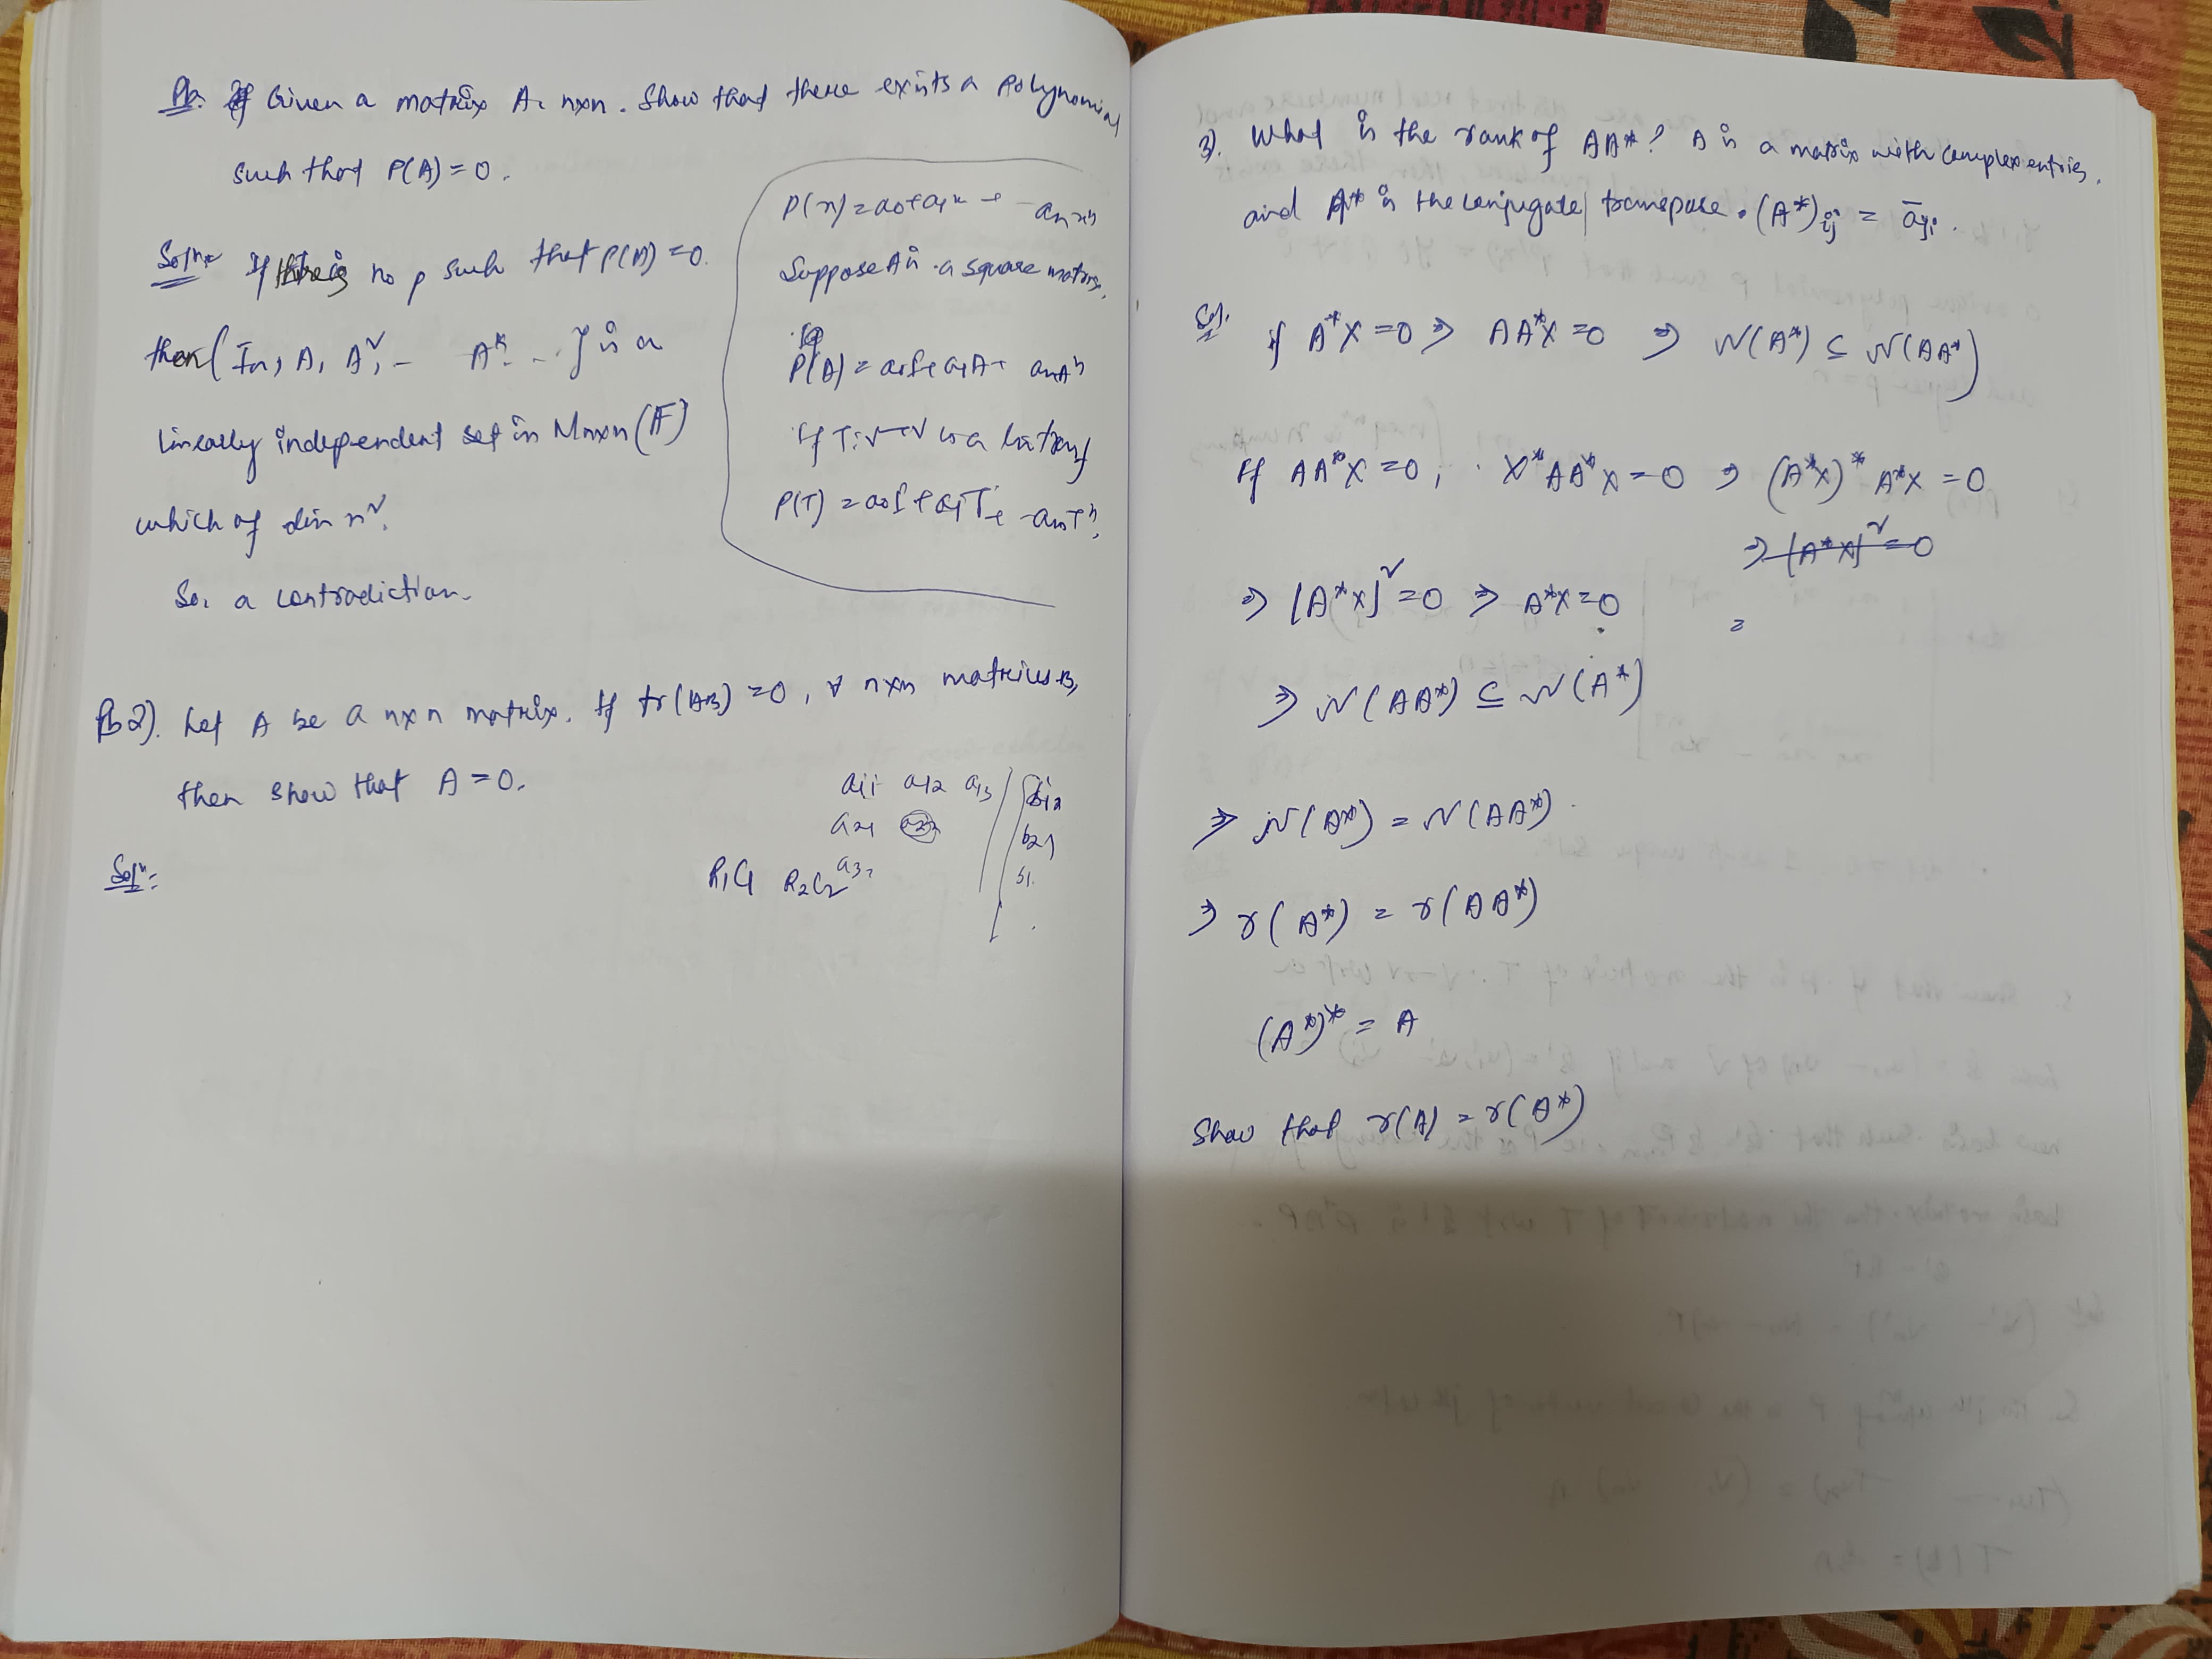 Pb. Given a matrix A, nxn. Show that there exists a Polynomial
such that P(A) = 0.
Soln: If there is no p such that P(A) = 0.
then { In, A, A², - A^k - - } is a
linearly independent set in Mnxn (F)
which of dim n².
So, a contradiction.
P(x) = a0 + a1x + - anx^n
Suppose A is a square matrix,
P(A) = a0I + a1A + anA^n
If T: V→V is a lin transf
P(T) = a0I + a1T + - anT^n.
Pb 2). Let A be a nxn matrix. If tr(AB) = 0, ∀ nxn matrices B,
then show that A = 0.
a11 a12 a13
a21 a22
a32
b21
R1C1 R2C2
Soln:
3). What is the rank of AA*? A is a matrix with complex entries.
and A* is the conjugate transpose. (A*)ij = āji.
Sol. if A*X = 0 ⇒ AA*X = 0 ⇒ N(A*) ⊆ N(AA*)
If AA*X = 0, X*AA*X = 0 ⇒ (A*X)* A*X = 0
⇒ |A*X|² = 0
⇒ |A*X|² = 0 ⇒ A*X = 0
=
⇒ N(AA*) ⊆ N(A*)
⇒ N(A*) = N(AA*).
⇒ r(A*) = r(AA*)
(A*)* = A
Show that r(A) = r(A*)